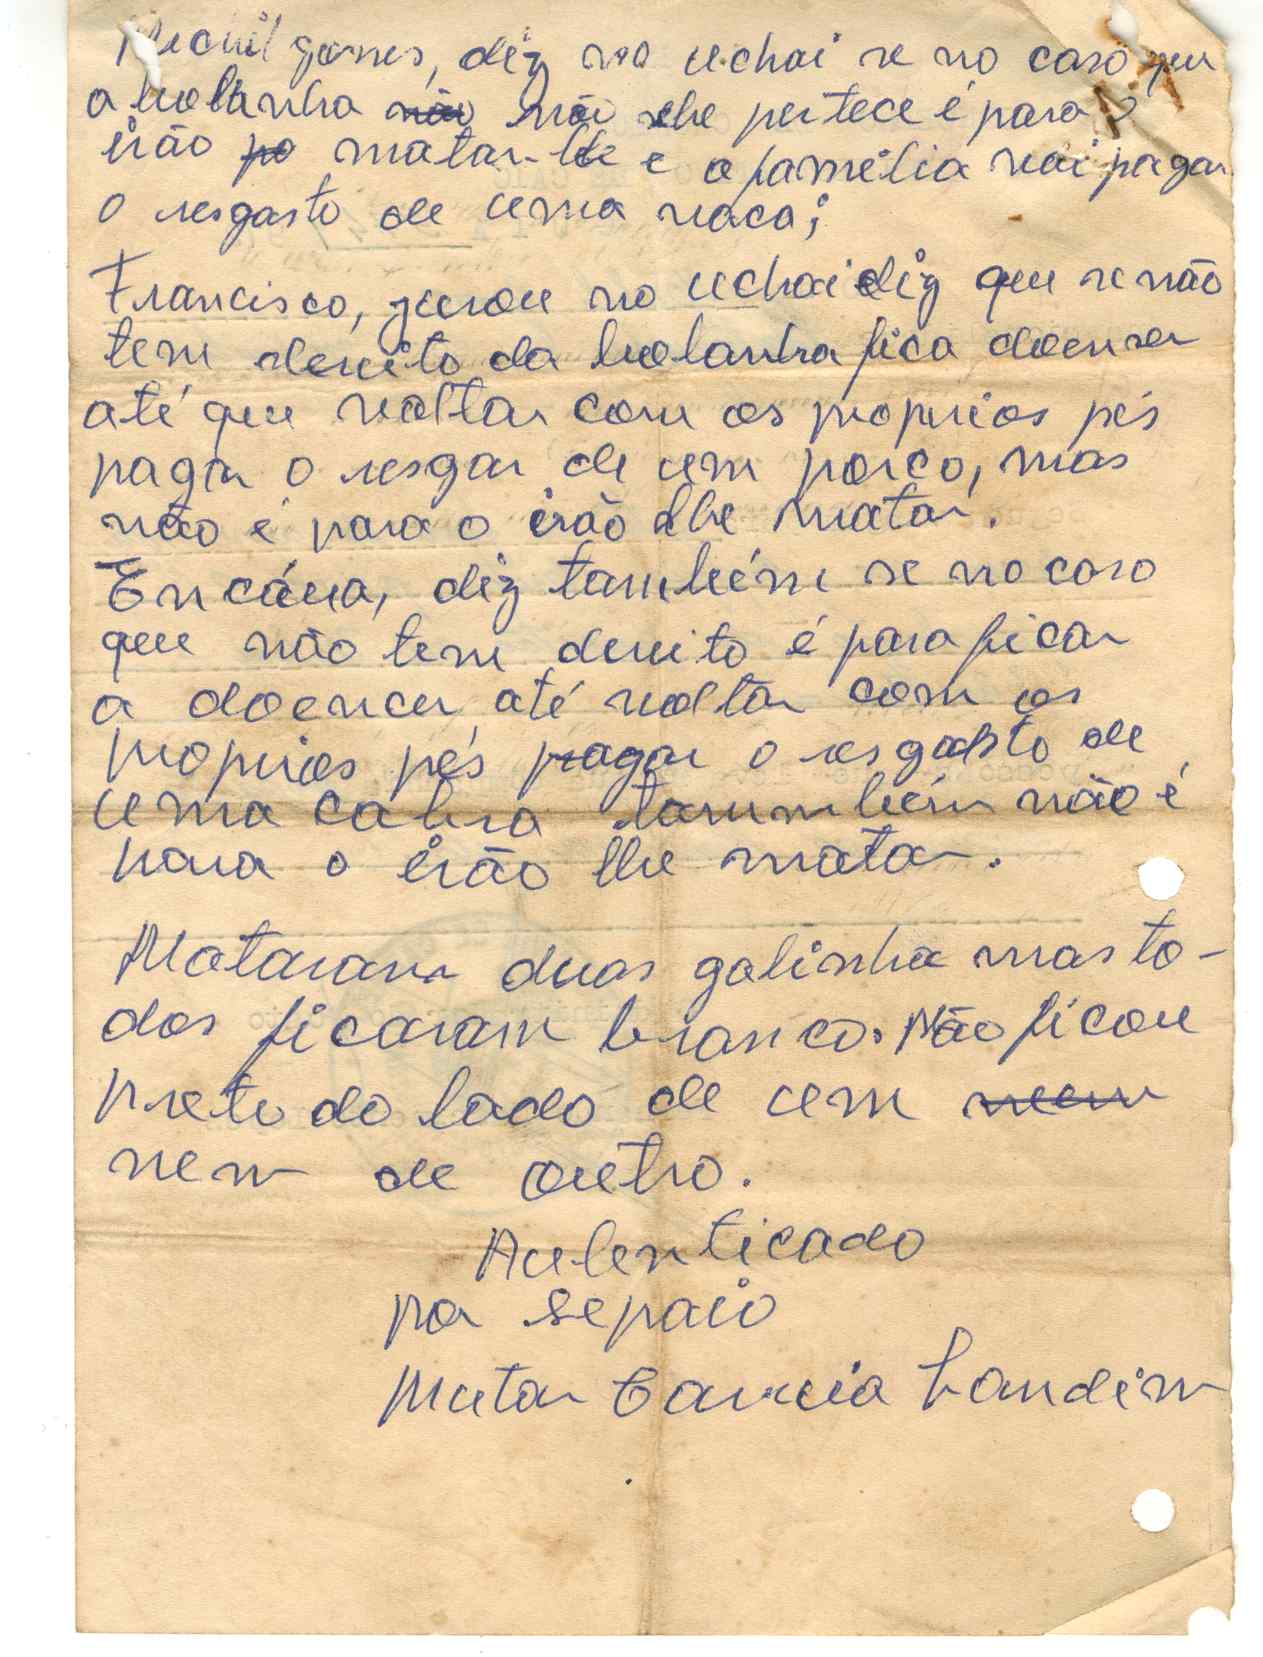 gomes, diz no uchai se no caso que
a bolanha não não lhe pertece é para o
irão po matar-lhe e a familia vai pagar
o resgasto de uma vaca;
Francisco, jurou no uchai diz que se não
tem dereito da bolanha fica doença
até que voltar com os proprios pés
pagar o resgar de um porco, mas
não é para o irão lhe matar.
Encáua, diz também se no caso
que não tem direito é para ficar
a doenca até voltar com os
proprios pés pagar o resgasto de
uma cabra tammbém não é
para o irão lhe matar.
Mataram duas galinha mas to-
dos ficaram branco. Não ficou
preto do lado de um nem
nem de outro.
Autenticado
por sepaio
Mutar Landim